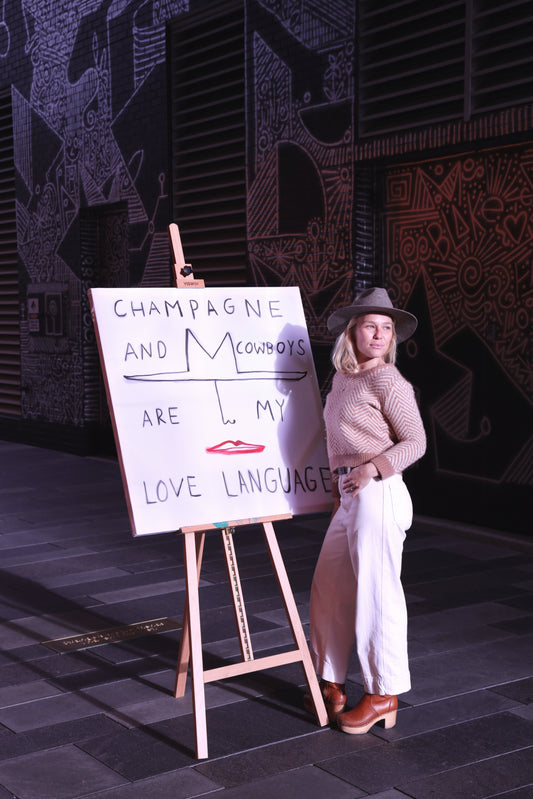 CHAMPAGNE
AND COWBOYS
ARE MY
LOVE LANGUAGE